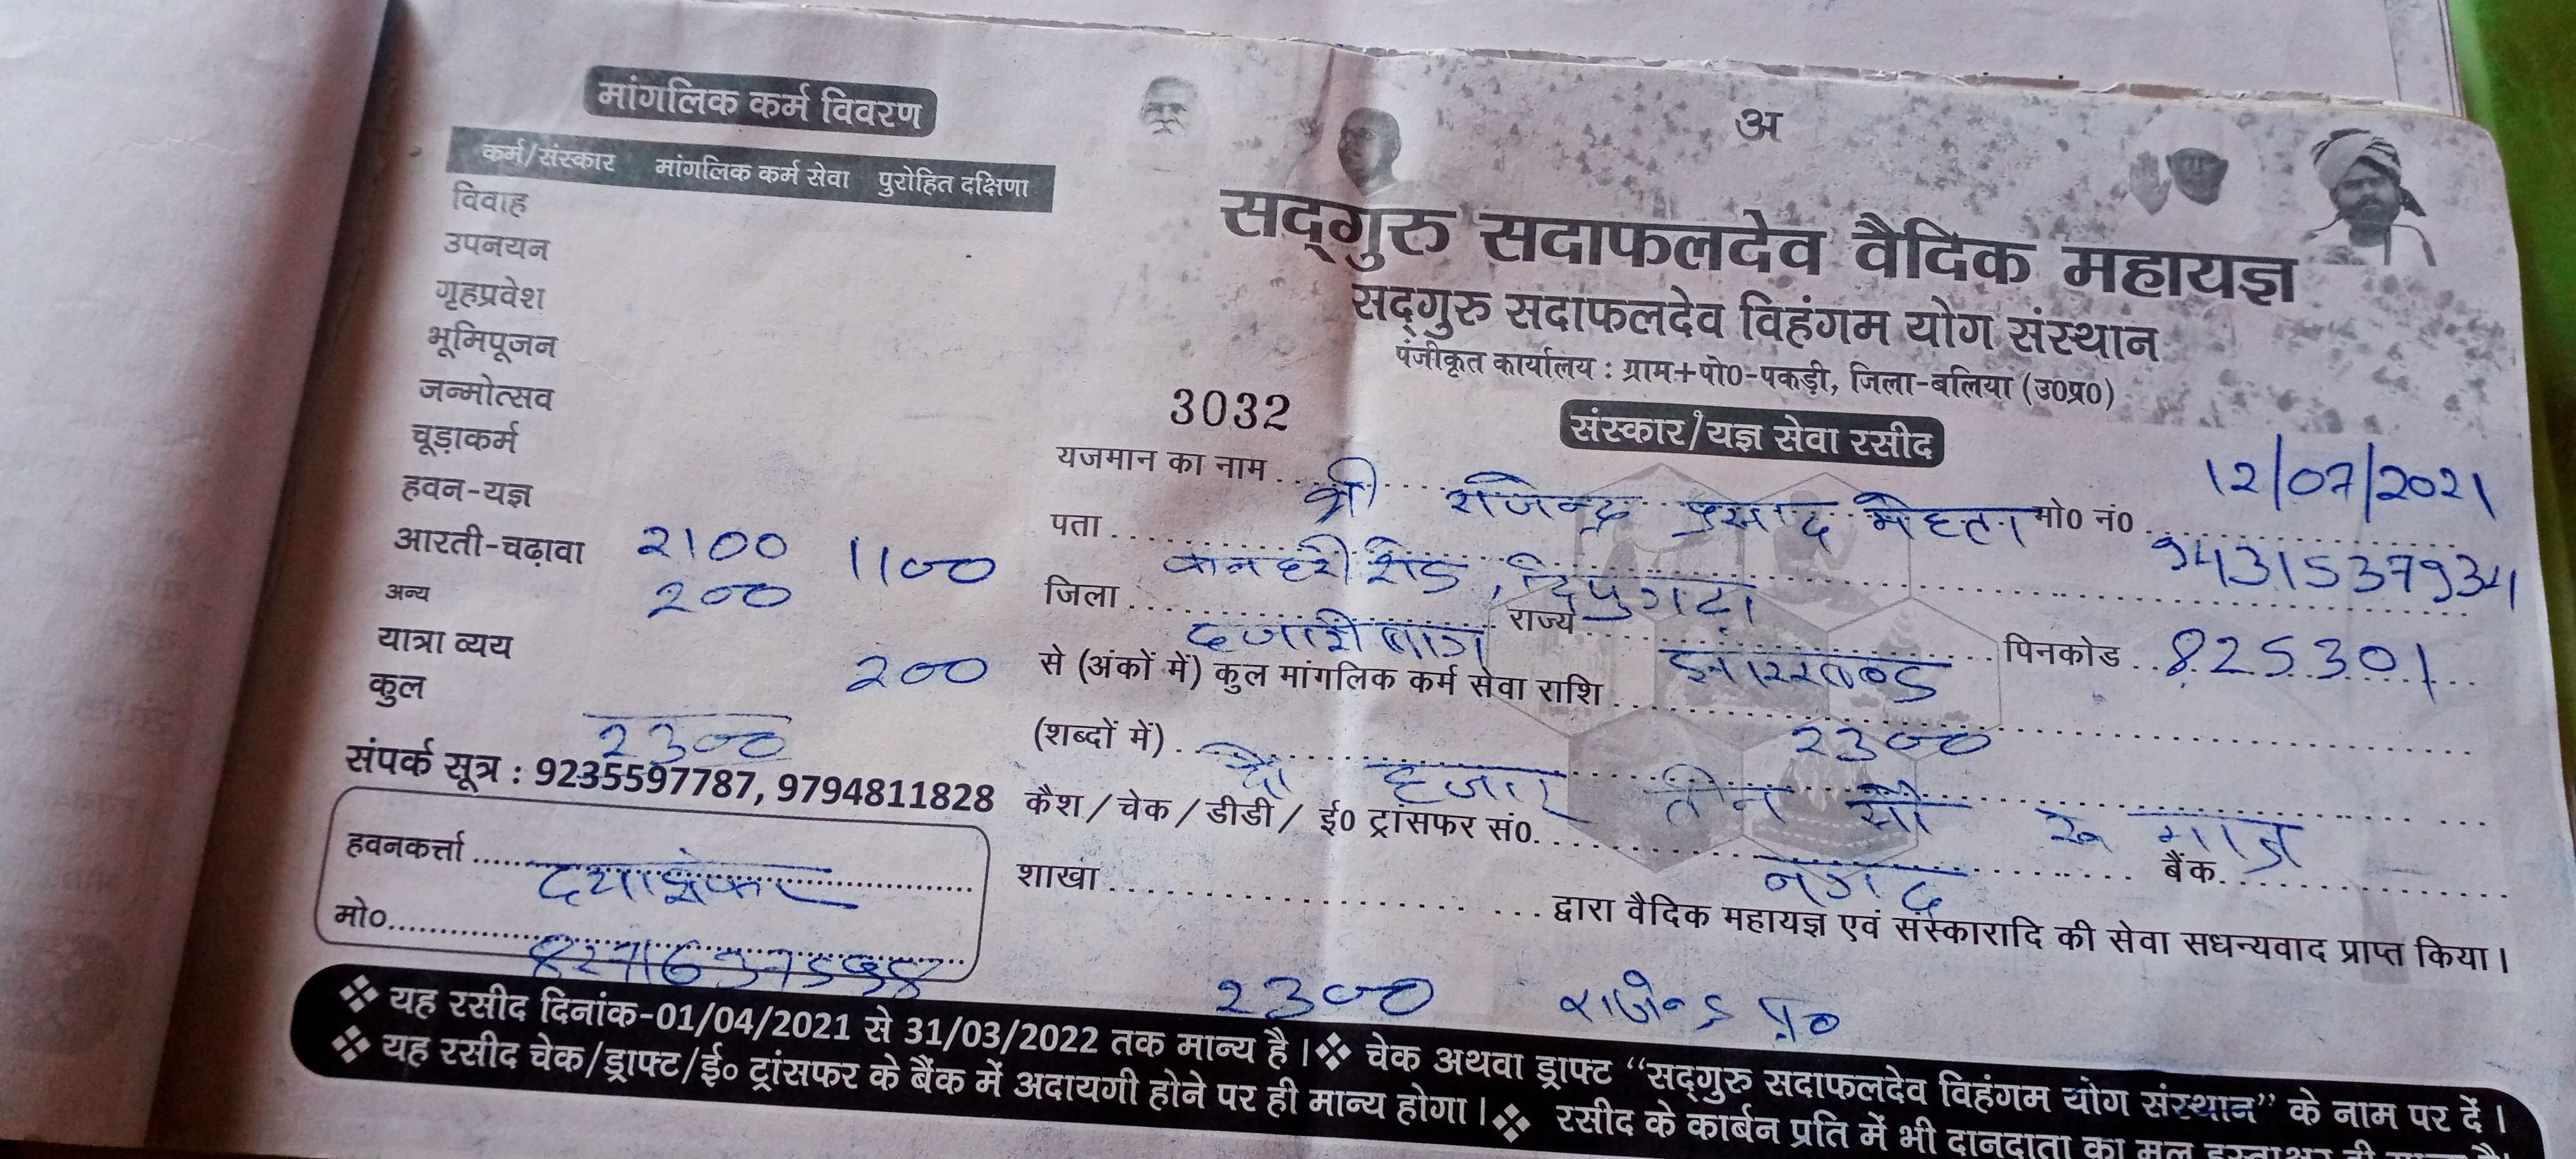 मांगलिक कर्म विवरण
कर्म/संस्कार मांगलिक कर्म सेवा पुरोहित दक्षिणा
विवाह
उपनयन
गृहप्रवेश
भूमिपूजन
जन्मोत्सव
चूड़ाकर्म
हवन-यज्ञ
आरती-चढ़ावा 2100 1100
अन्य 200
यात्रा व्यय 200
कुल 2300
संपर्क सूत्र : 9235597787, 9794811828
हवनकर्त्ता दयाशंकर
मो०
अ
सद्गुरु सदाफलदेव वैदिक महायज्ञ
सद्गुरु सदाफलदेव विहंगम योग संस्थान
पंजीकृत कार्यालय : ग्राम+पो0-पकड़ी, जिला-बलिया (उ0प्र0)
3032
संस्कार/यज्ञ सेवा रसीद
12/07/2021
यजमान का नाम श्री राजेन्द्र प्रसाद मेहता मो0 नं0 9431537934
पता कनहरी रोड, दिपुगढ़ा
जिला हजारीबाग राज्य झारखण्ड पिनकोड 825301
से (अंकों में) कुल मांगलिक कर्म सेवा राशि 2300
(शब्दों में) दो हजार तीन सौ रू मात्र
कैश / चेक / डीडी / ई0 ट्रांसफर सं0. नगद बैंक
शाखा द्वारा वैदिक महायज्ञ एवं संस्कारादि की सेवा सधन्यवाद प्राप्त किया।
2300 राजेन्द्र प्र०
❖ यह रसीद दिनांक-01/04/2021 से 31/03/2022 तक मान्य है। ❖ चेक अथवा ड्राफ्ट “सद्गुरु सदाफलदेव विहंगम योग संस्थान” के नाम पर दें।
❖ यह रसीद चेक/ड्राफ्ट/ई० ट्रांसफर के बैंक में अदायगी होने पर ही मान्य होगा। ❖ रसीद के कार्बन प्रति में भी दानदाता का मूल हस्ताक्षर